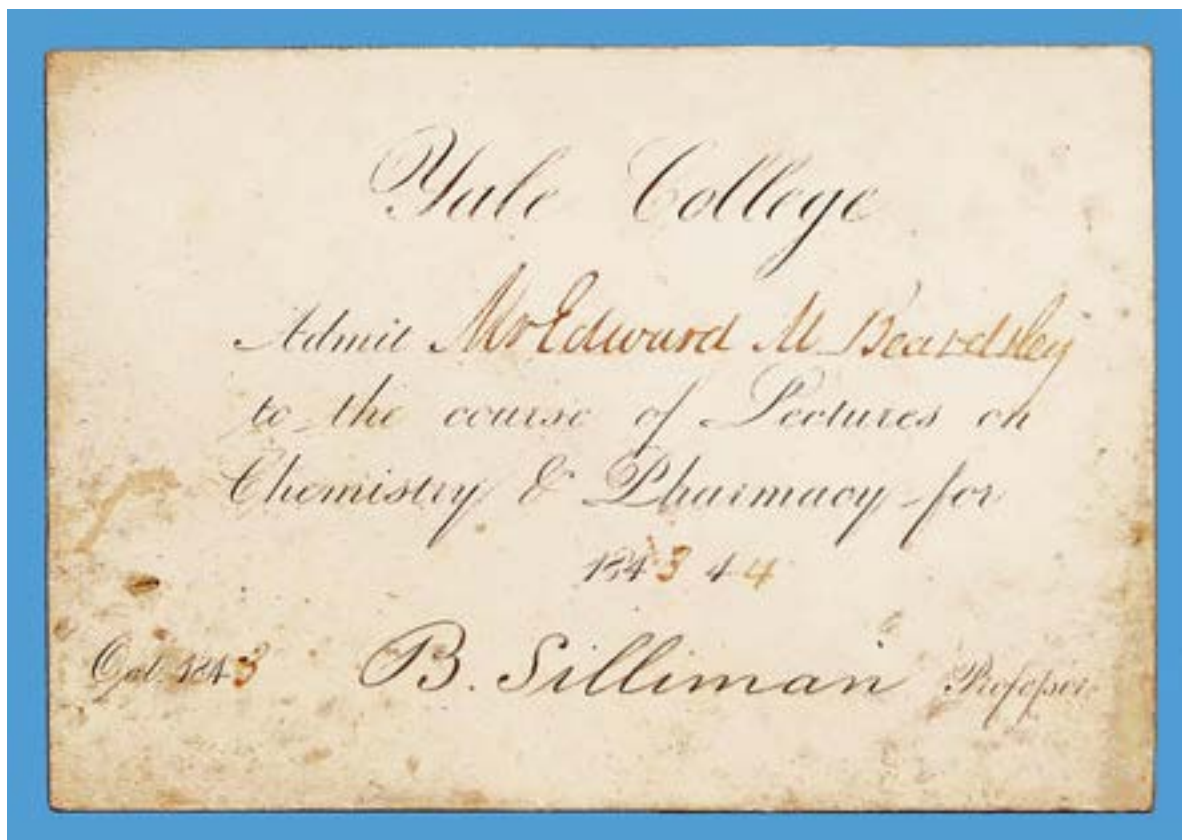 Yale College
Admit Mr Edward M Beardsley
to the course of Lectures on
Chemistry & Pharmacy for
1843 44
Oct. 1843 B. Silliman Professor